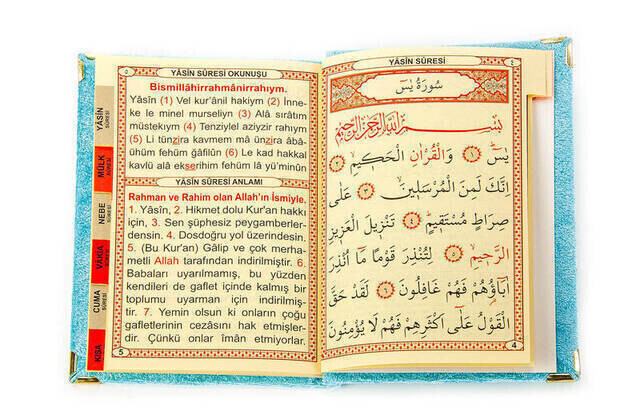 YÂSİN SÛRESİ
٤
سُورَةُ يٰسٓ
بِسْمِ اللّٰهِ الرَّحْمٰنِ الرَّحِيمِ
يٰسٓ ﴿١﴾ وَالْقُرْاٰنِ الْحَكِيمِ ﴿٢﴾
اِنَّكَ لَمِنَ الْمُرْسَلِينَ ﴿٣﴾ عَلٰى
صِرَاطٍ مُسْتَقِيمٍ ﴿٤﴾ تَنْزِيلَ الْعَزِيزِ
الرَّحِيمِ ﴿٥﴾ لِتُنْذِرَ قَوْمًا مَٓا اُنْذِرَ
اٰبَٓاؤُ۬هُمْ فَهُمْ غَافِلُونَ ﴿٦﴾ لَقَدْ حَقَّ
الْقَوْلُ عَلٰٓى اَكْثَرِهِمْ فَهُمْ لَا يُؤْمِنُونَ
4
٥
YÂSİN SÛRESİ OKUNUŞU
Bismillâhirrahmânirrahıym.
Yâsîn (1) Vel kur'ânil hakiym (2) İnne-
ke le minel murseliyn (3) Alâ sıratım
müstekıym (4) Tenziylel aziyzir rahıym
(5) Li tünzira kavmem mâ ünzira âbâ-
ühüm fehüm ğâfilûn (6) Le kad hakkal
kavlü alâ ekserihim fehüm lâ yü'minûn
YÂSİN SÛRESİ ANLAMI
Rahman ve Rahim olan Allah'ın İsmiyle.
1. Yâsîn, 2. Hikmet dolu Kur'an hakkı
için, 3. Sen şüphesiz peygamberler-
densin. 4. Dosdoğru yol üzerindesin.
5. (Bu Kur'an) Gâlip ve çok merha-
metli Allah tarafından indirilmiştir. 6.
Babaları uyarılmamış, bu yüzden
kendileri de gaflet içinde kalmış bir
toplumu uyarman için indirilmiş-
tir. 7. Yemin olsun ki onların çoğu
gafletlerinin cezâsını hak etmişler-
dir. Çünkü onlar îman etmiyorlar.
5
YÂSİN
SÛRESİ
MÜLK
SÛRESİ
NEBE
SÛRESİ
VÂKIA
SÛRESİ
CUMA
SÛRESİ
KISA